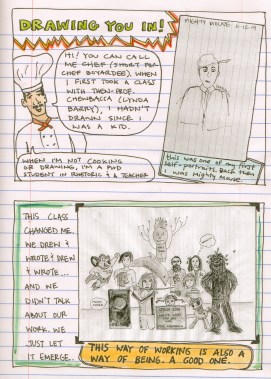 DRAWING YOU IN!
HI! YOU CAN CALL
ME CHEF (SHORT FOR
CHEF BOYARDEE). WHEN
I FIRST TOOK A CLASS
WITH THEN-PROF.
CHEWBACCA (LYNDA
BARRY), I HADN'T
DRAWN SINCE I
WAS A KID.
WHEN I'M NOT COOKING
OR DRAWING, I'M A PHD
STUDENT IN RHETORIC & A TEACHER
MIGHTY MOUSE
this was one of my first
self-portraits. Back then
I was Mighty Mouse.
THIS CLASS
CHANGED ME.
WE DREW &
WROTE & DREW
& WROTE...
AND WE
DIDN'T TALK
ABOUT OUR
WORK. WE
JUST LET
IT EMERGE.
THIS WAY OF WORKING IS ALSO A
WAY OF BEING. A GOOD ONE.